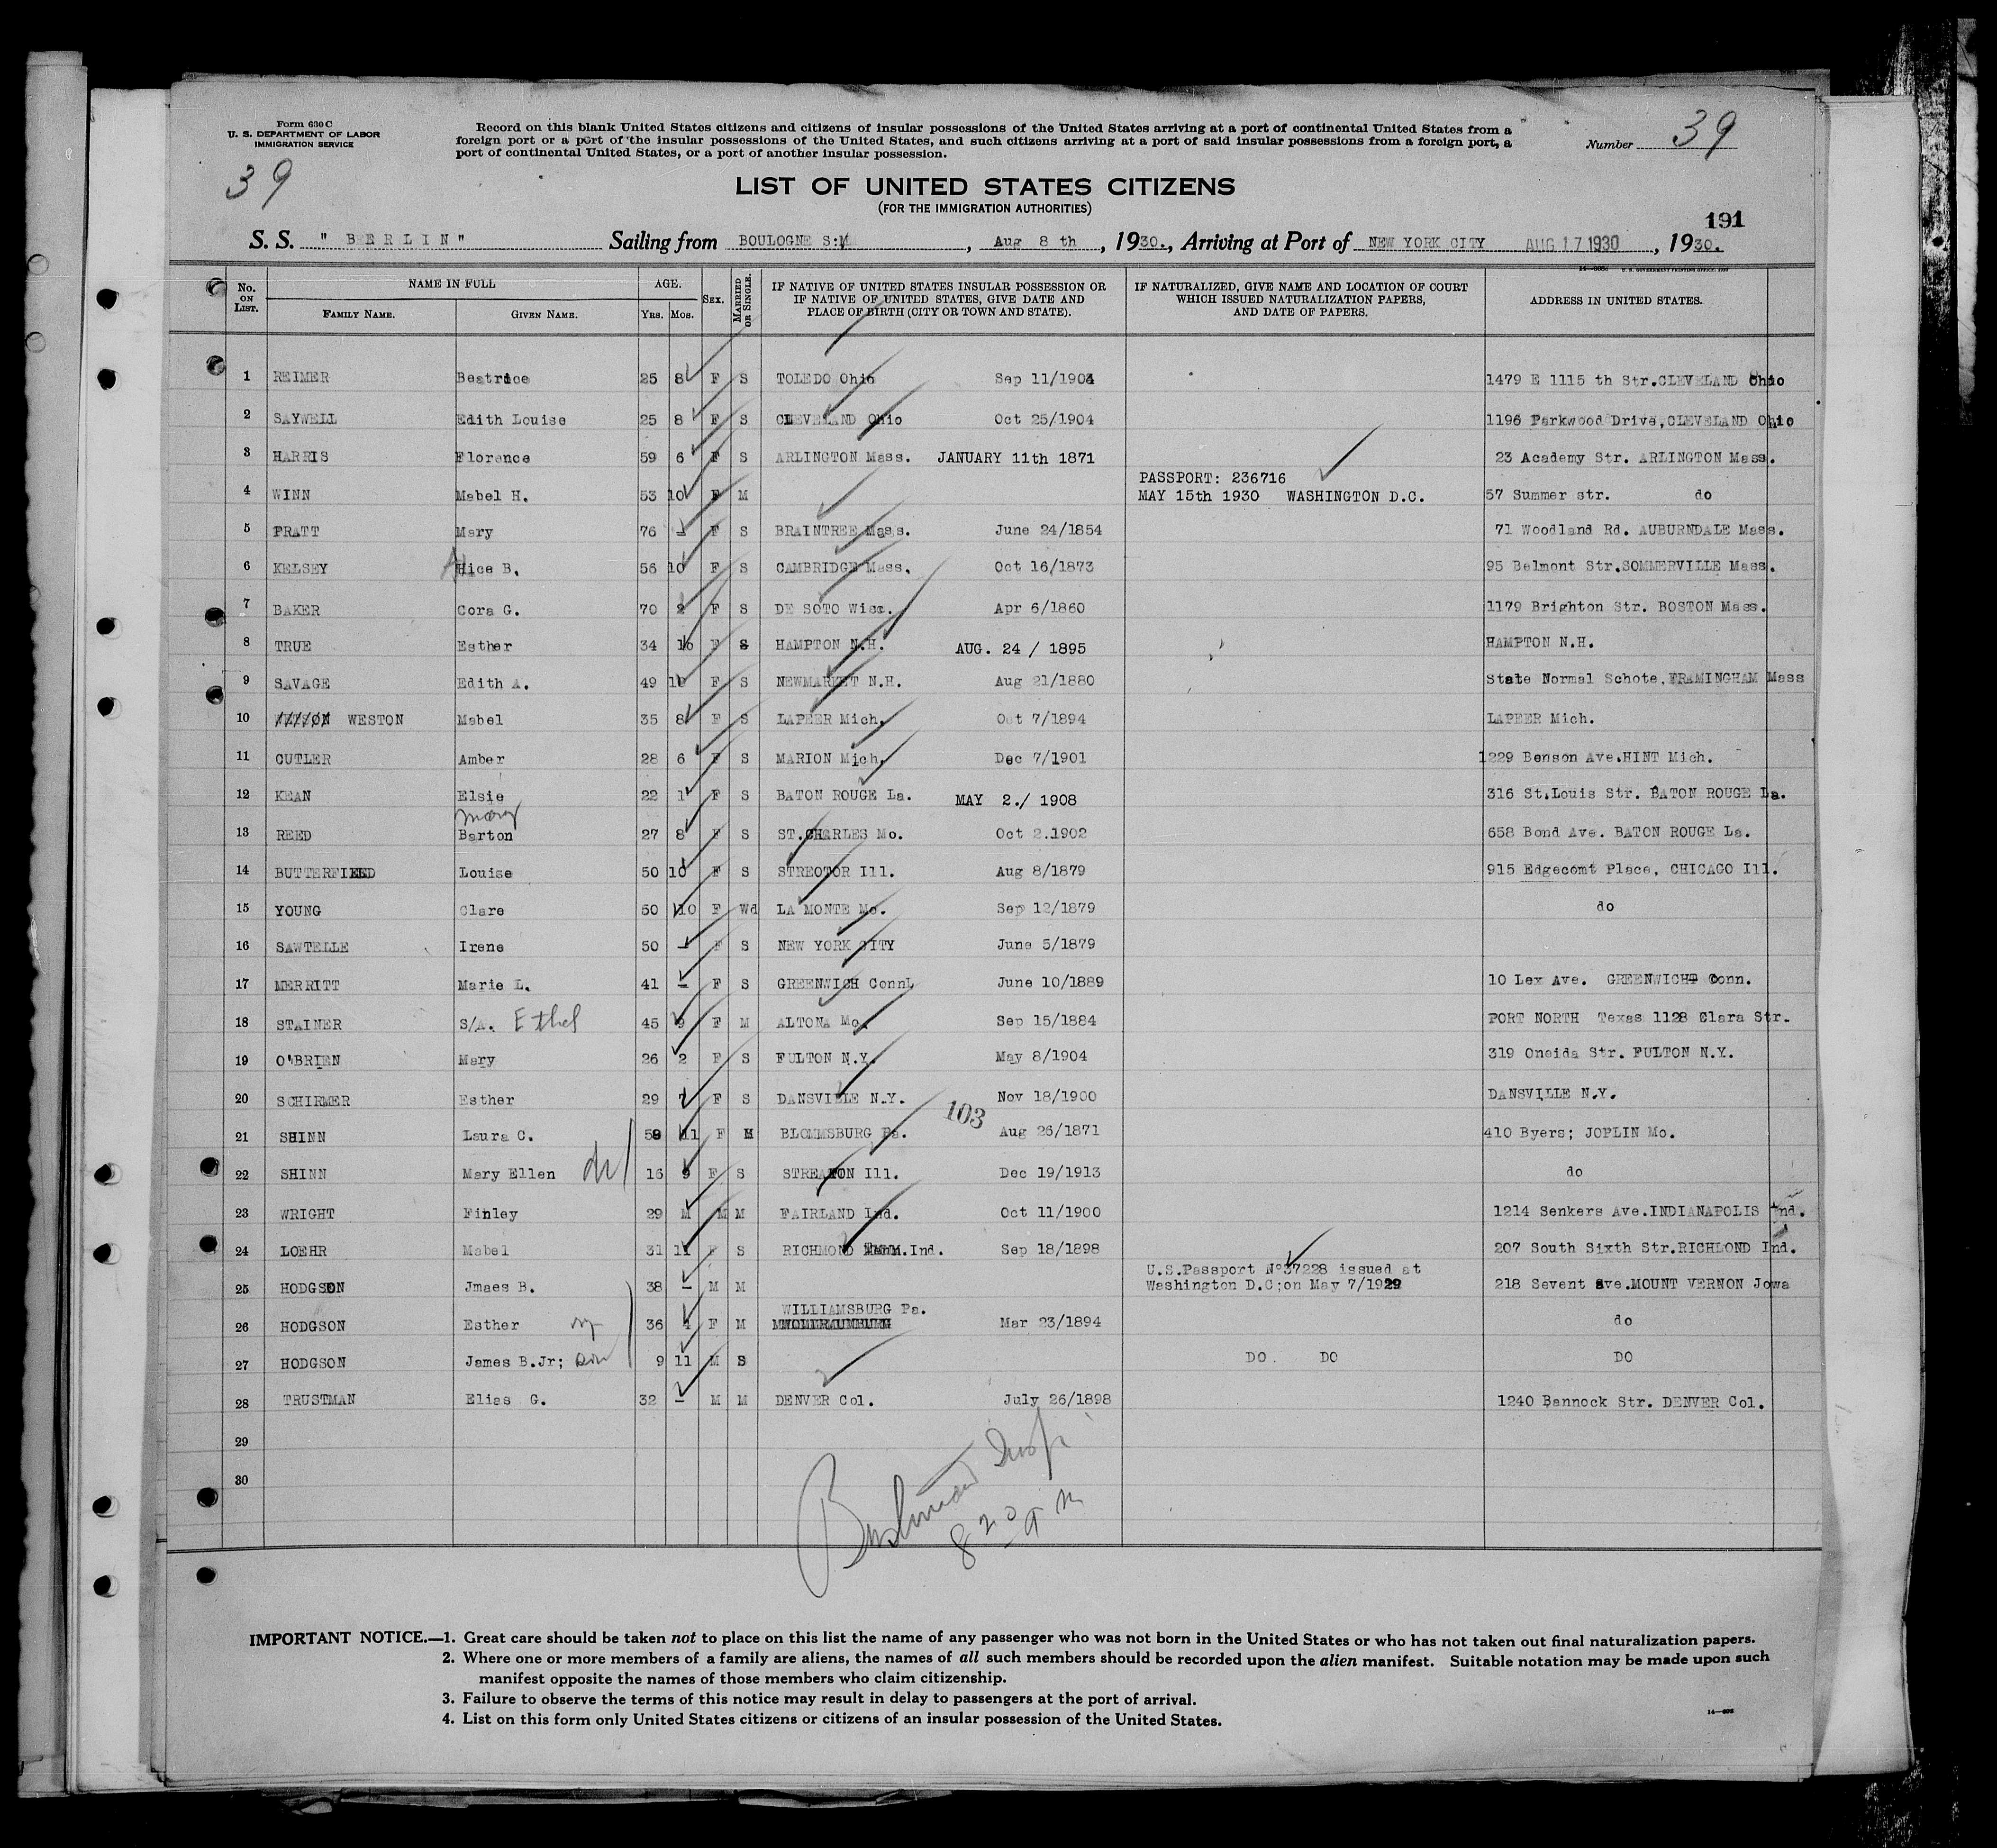 Form 630 C
U. S. DEPARTMENT OF LABOR
IMMIGRATION SERVICE
39
Record on this blank United States citizens and citizens of insular possessions of the United States arriving at a port of continental United States from a
foreign port or a port of the insular possessions of the United States, and such citizens arriving at a port of said insular possessions from a foreign port, a
port of continental United States, or a port of another insular possession.
Number 39
LIST OF UNITED STATES CITIZENS
(FOR THE IMMIGRATION AUTHORITIES)
191
S. S. " BERLIN " Sailing from BOULOGNE S:M , Aug 8 th , 1930., Arriving at Port of NEW YORK CITY AUG 17 1930 , 1930.
No. ON LIST. NAME IN FULL FAMILY NAME. GIVEN NAME. AGE. YRS. MOS. SEX. MARRIED OR SINGLE. IF NATIVE OF UNITED STATES INSULAR POSSESSION OR IF NATIVE OF UNITED STATES, GIVE DATE AND PLACE OF BIRTH (CITY OR TOWN AND STATE). IF NATURALIZED, GIVE NAME AND LOCATION OF COURT WHICH ISSUED NATURALIZATION PAPERS, AND DATE OF PAPERS. ADDRESS IN UNITED STATES.
1 REIMER Beatrice 25 8 F S TOLEDO Ohio Sep 11/1904 1479 E 1115 th Str.CLEVELAND Ohio
2 SAYWELL Edith Louise 25 8 F S CLEVELAND Ohio Oct 25/1904 1196 Parkwood Drive,CLEVELAND Ohio
3 HARRIS Florence 59 6 F S ARLINGTON Mass. JANUARY 11th 1871 23 Academy Str. ARLINGTON Mass.
4 WINN Mabel H. 53 10 F M PASSPORT: 236716 MAY 15th 1930 WASHINGTON D.C. 57 Summer str. do
5 PRATT Mary 76 - F S BRAINTREE Mass. June 24/1854 71 Woodland Rd. AUBURNDALE Mass.
6 KELSEY Alice B. 56 10 F S CAMBRIDGE Mass. Oct 16/1873 95 Belmont Str.SOMMERVILLE Mass.
7 BAKER Cora G. 70 2 F S DE SOTO Wisc. Apr 6/1860 1179 Brighton Str. BOSTON Mass.
8 TRUE Esther 34 10 F S HAMPTON N.H. AUG. 24 / 1895 HAMPTON N.H.
9 SAVAGE Edith A. 49 10 F S NEWMARKET N.H. Aug 21/1880 State Normal Schote,FRAMINGHAM Mass
10 WESTON Mabel 35 8 F S LAPEER Mich. Oct 7/1894 LAPEER Mich.
11 CUTLER Amber 28 6 F S MARION Mich. Dec 7/1901 1229 Benson Ave.HINT Mich.
12 KEAN Elsie 22 1 F S BATON ROUGE La. MAY 2./ 1908 316 St.Louis Str. BATON ROUGE La.
13 REED Mary Barton 27 8 F S ST.CHARLES Mo. Oct 2.1902 658 Bond Ave. BATON ROUGE La.
14 BUTTERFIELD Louise 50 10 F S STREOTOR Ill. Aug 8/1879 915 Edgecomt Place, CHICAGO Ill.
15 YOUNG Clare 50 10 F Wd LA MONTE Mo. Sep 12/1879 do
16 SAWTELLE Irene 50 - F S NEW YORK CITY June 5/1879
17 MERRITT Marie L. 41 - F S GREENWICH Conn. June 10/1889 10 Lex Ave. GREENWICH Conn.
18 STAINER S/A. Ethel 45 9 F M ALTONA Mo. Sep 15/1884 PORT NORTH Texas 1128 Clara Str.
19 O'BRIEN Mary 26 2 F S FULTON N.Y. May 8/1904 319 Oneida Str. FULTON N.Y.
20 SCHIRMER Esther 29 7 F S DANSVILLE N.Y. Nov 18/1900 DANSVILLE N.Y.
103
21 SHINN Laura C. 58 11 F M BLOMMSBURG Pa. Aug 26/1871 410 Byers; JOPLIN Mo.
22 SHINN Mary Ellen 16 9 F S Ill. Dec 19/1913 do
23 WRIGHT Finley 29 M M M FAIRLAND Ind. Oct 11/1900 1214 Senkers Ave.INDIANAPOLIS Ind.
24 LOEHR Mabel 31 11 F S RICHMOND Ind. Sep 18/1898 207 South Sixth Str.RICHLOND Ind.
25 HODGSON Jmaes B. 38 - M M U.S.Passport No37228 issued at Washington D.C;on May 7/1929 218 Sevent Ave.MOUNT VERNON Jowa
26 HODGSON Esther 36 4 F M WILLIAMSBURG Pa. Mar 23/1894 do
27 HODGSON James B.Jr; son 9 11 M S DO. DO DO
28 TRUSTMAN Elias G. 32 - M M DENVER Col. July 26/1898 1240 Bannock Str. DENVER Col.
29
30
8 20 a m
IMPORTANT NOTICE.—1. Great care should be taken not to place on this list the name of any passenger who was not born in the United States or who has not taken out final naturalization papers.
2. Where one or more members of a family are aliens, the names of all such members should be recorded upon the alien manifest. Suitable notation may be made upon such
manifest opposite the names of those members who claim citizenship.
3. Failure to observe the terms of this notice may result in delay to passengers at the port of arrival.
4. List on this form only United States citizens or citizens of an insular possession of the United States.